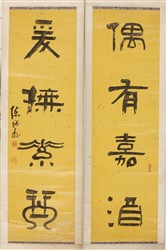 偶有嘉酒
爰撫素琴